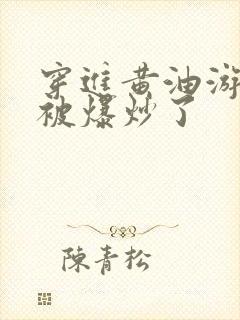 穿进黄油游
被爆炒了
陈青松